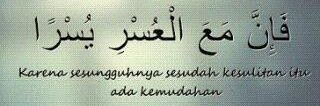 فَإِنَّ مَعَ الْعُسْرِ يُسْرًا
Karena sesungguhnya sesudah kesulitan itu
ada kemudahan